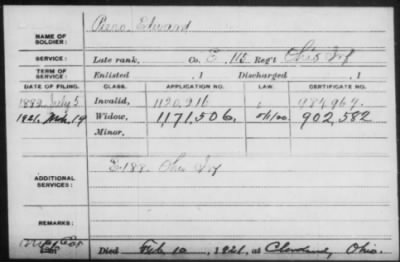 NAME OF SOLDIER: Piero Edward
SERVICE: Late rank, Co. E, 115 Reg't Ohio Inf
TERM OF SERVICE: Enlisted , 1 Discharged , 1
DATE OF FILING. CLASS. APPLICATION NO. LAW. CERTIFICATE NO.
1892 July 5 Invalid, 1120,916
1921, Mch. 19 Widow, 1,171,506, Ohio. 902,582
Minor.
ADDITIONAL SERVICES: E 188 Ohio Inf
REMARKS:
Died Feb 10, 1921, at Cleveland, Ohio.